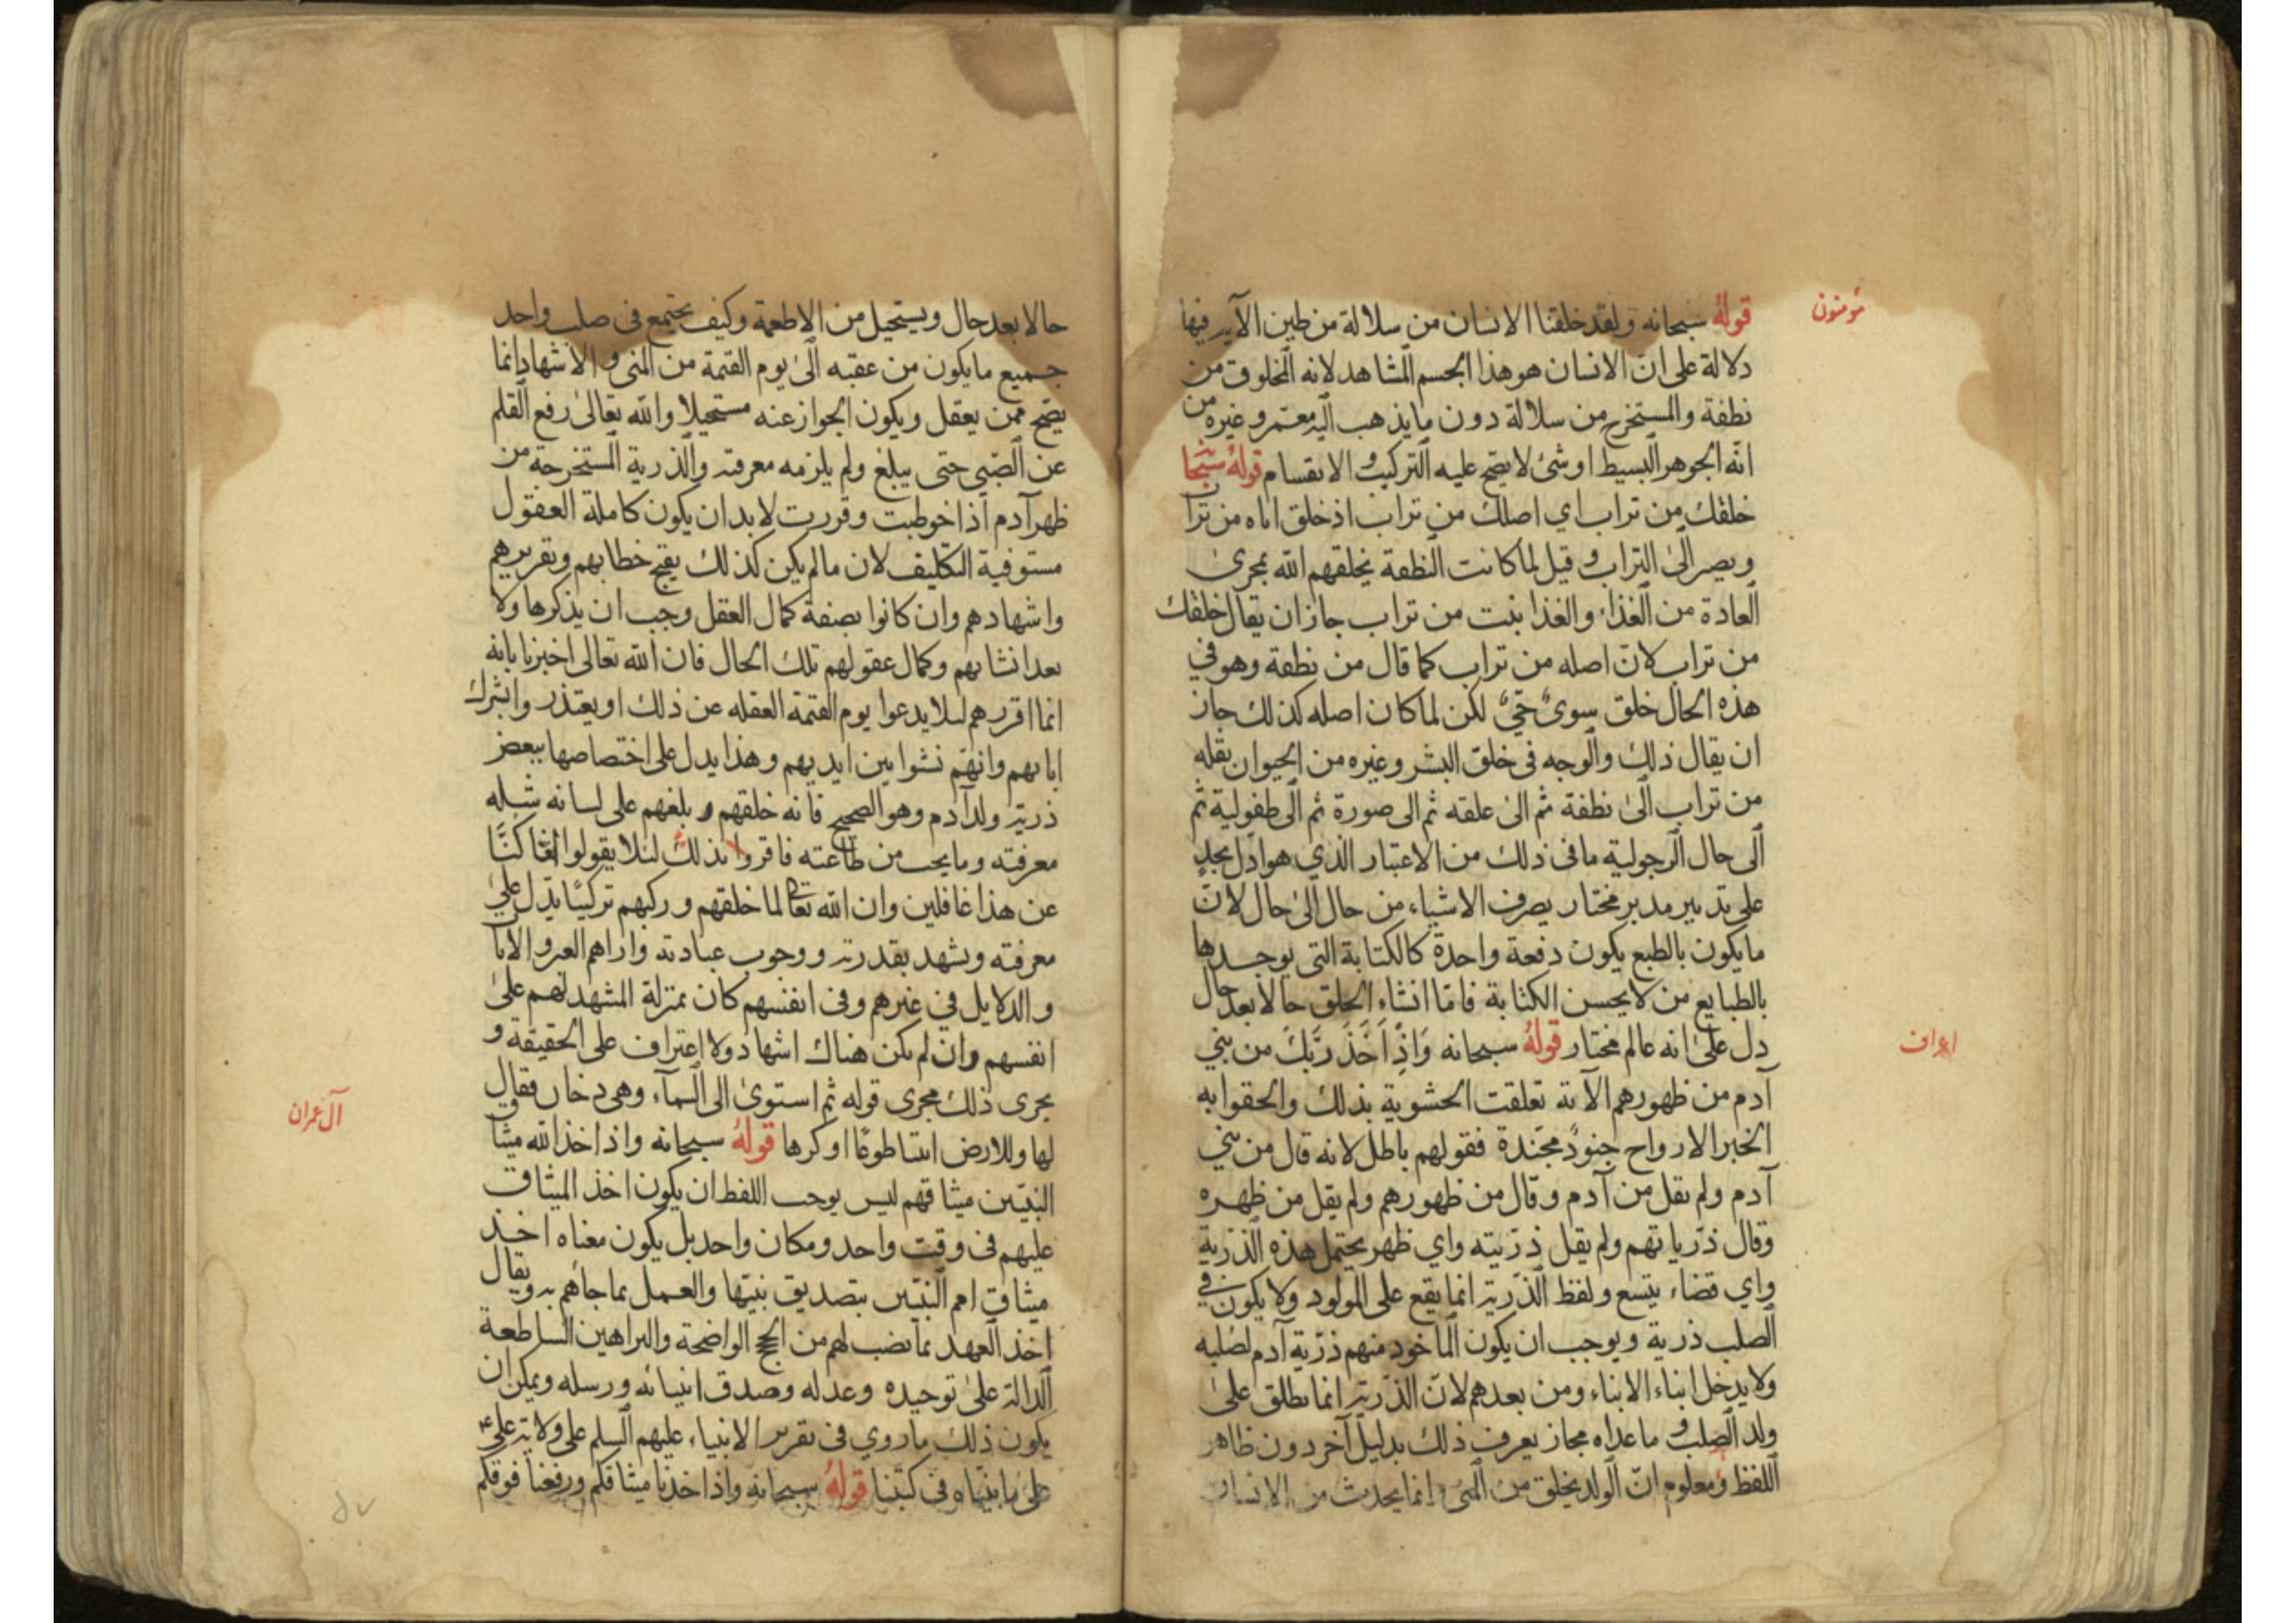 مؤمنون
قوله سبحانه ولقد خلقنا الانسان من سلالة من طين الآية فيها
دلالة على انّ الانسان هو هذا الجسم المشاهد لانه المخلوق من
نطفة والمستخرج من سلالة دون ما يذهب اليه معتمر وغيره من
انّه الجوهر البسيط او شئ لا يصح عليه التركيب و الانقسام قوله سبحانه
خلقك من تراب اي اصلك من تراب اذ خلق اباه من تراب
ويصر الى التراب و قيل لما كانت النطفة يخلقهم الله بمجرى
العادة من الغذاء والغذا ينبت من تراب جاز ان يقال خلقك
من تراب لانّ اصله من تراب كما قال من نطفة وهو في
هذه الحال خلق سوىّ حيّ لكن لما كان اصله كذلك جاز
ان يقال ذلك والوجه فى خلق البشر وغيره من الحيوان بقله
من تراب الى نطفة ثم الى علقه ثم الى صورة ثم الى طفولية ثم
الى حال الرجولية ما فى ذلك من الاعتبار الذي هو ادل
على تدبير مدبر مختار يصرف الاشياء من حال الى حال لانّ
ما يكون بالطبع يكون دفعة واحدة كالكتابة التى يوجدها
بالطبايع من لا يحسن الكتابة فامّا انشاء الخلق حالا بعد حال
دل على انه عالم مختار قوله سبحانه وَاِذْ اَخَذَ رَبُّكَ من بني
اعراف
آدم من ظهورهم الآية تعلقت الحشوية بذلك والحقوا به
الخبر الارواح جنودٌ مجنّدة فقولهم باطل لانه قال من بني
آدم ولم يقل من آدم وقال من ظهورهم ولم يقل من ظهره
وقال ذرّياتهم ولم يقل ذرّيته واي ظهر يحتمل هذه الذرّية
واي فضاء يتسع ولفظ الذرّية انما يقع على المولود ولا يكون في
الصلب ذرية ويوجب ان يكون المأخوذ منهم ذرّية آدم لصلبه
ولا يدخل ابناء الابناء ومن بعدهم لانّ الذرّية انما يطلق على
ولد الصلب و ما عداه مجاز يعرف ذلك بدليل آخر دون ظاهر
اللفظ ومعلوم انّ الولد يخلق من المنى و انما يحدث من الانسان
حالا بعد حال ويستحيل من الاطعمة وكيف يجتمع فى صلب واحد
جميع ما يكون من عقبه الى يوم القيمة من المنى و الاشهاد انما
يصح ممن يعقل ويكون الجواز عنه مستحيلا والله تعالى رفع القلم
عن الصّبي حتى يبلغ ولم يلزمه معرفته والذرية المستخرجة من
ظهر آدم اذا خوطبت وقررت لا بد ان يكون كاملة العقول
مستوفية التكليف لان ما لم يكن كذلك يقبح خطابهم وتقريرهم
واشهادهم وان كانوا بصفة كمال العقل وجب ان يذكرها ولا
بعد انشائهم وكمال عقولهم تلك الحال فان الله تعالى اخبرنا بانه
انما اقررهم لىلا يدعوا يوم القيمة الغفله عن ذلك او يعتذر وا بشرك
ابائهم وانهم نشوا بين ايديهم وهذا يدل على اختصاصها ببعض
ذرية ولد آدم وهو الصحيح فانه خلقهم و بلغهم على لسان
معرفته وما يجب من طاعته فاقروا بذلك لئلا يقولوا انّا كنّا
عن هذا غافلين وان الله تعالى لما خلقهم وركبهم تركيبًا يدل على
معرفته ويشهد بقدرته ووجوب عبادته واراهم العبر والايات
والدلايل في غيرهم وفى انفسهم كان بمنزلة المشهد لهم على
انفسهم وان لم يكن هناك اشهاد ولا اعتراف على الحقيقة و
يجرى ذلك مجرى قوله ثم استوى الى السمآء وهى دخان فقال
لها وللارض ائتيا طوعًا او كرها قوله سبحانه واذ اخذ الله ميثاق
آل عمران
النبيّين ميثاقهم ليس يوجب اللفظ ان يكون اخذ الميثاق
عليهم فى وقت واحد ومكان واحد بل يكون معناه اخذ
ميثاق امم النبيّين بتصديق نبيّها والعمل بما جاءهم به ويقال
اخذ العهد بما نصب لهم من الحجج الواضحة والبراهين الساطعة
الدالة على توحيده وعدله وصدق انبيائه ورسله ويمكن ان
يكون ذلك ما روي فى تقرير الانبياء عليهم السلم على ولاية علي ع
على ما بيّناه فى كتبنا قوله سبحانه واذ اخذنا ميثاقكم ورفعنا فوقكم